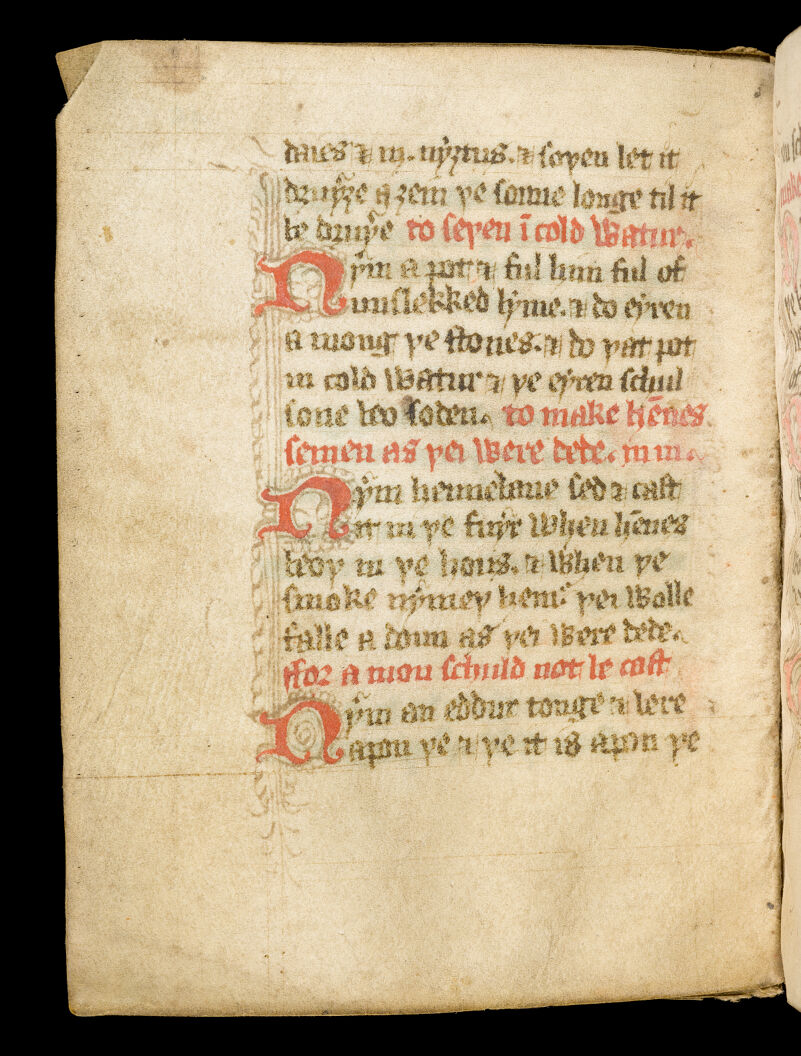 daies & iij. nyȝtus. & soyen let it
druyȝe aȝein ye sonne longe til it
be druyȝe to seyen ī cold Watur.
Nym a pot & ful him ful of
unslekked lyme. & do eyren
a mong ye stones. & do yat pot
in cold Watur & ye eyren schul
sone beo soden. to make hēnes
semen as yei were dede.
Nym hennebane sed & cast
it in ye fuyr When hēnes
beoy in ye hous. & When ye
smoke nymey hem: yei Wolle
falle a doun as yei Were dede.
ffor a mon schuld not be cast
Nym an eddur tonge & bere
apon ye & ye it is apon ye